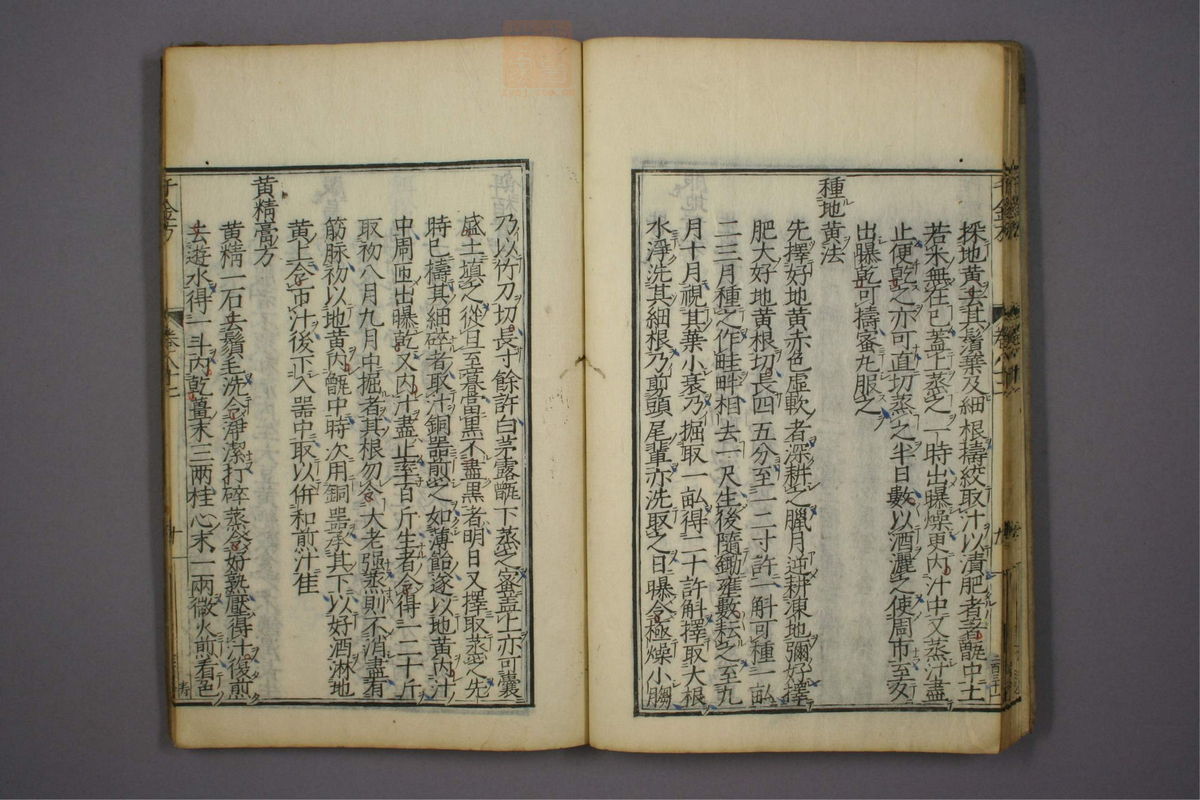 採地黄去其鬚葉及細根擣絞取汁以漬肥者著甑中土
若米無在已蓋上蒸之一時出曝燥更内汁中又蒸汁盡
止便乾之亦可直切蒸之半日數以酒灑之使周帀至夕
出曝乾可擣蜜丸服之
種地黄法
先擇好地黄赤色虚軟者深耕之臘月逆耕凍地彌好擇
肥大好地黄根切長四五分至一二寸許一斛可種一畝
二三月種之作畦畤相去一尺生後隨鋤壅數耘之至九
月十月視其葉小衰乃掘取一畝得二十許斛擇取大根
水淨洗其細根乃剪頭尾輩亦洗取之日曝令極燥小膓
乃以竹刀切長寸餘許白茅露甑下蒸之密蓋上亦可囊
盛土填之從旦至暮當黒不盡黒者明日又擇取蒸之先
時已擣其細碎者取汁銅器煎之如薄飴遂以地黄内汁
中周匝出曝乾又内汁盡止率百斤生者令得一二十斤
取初八月九月中掘者其根勿令大老强蒸則不消盡有
筋脉初以地黄内甑中時次用銅器承其下以好酒淋地
黄上令帀汁後下入器中取以併和煎汁佳
黄精膏方
黄精一石去鬚毛洗令淨潔打碎蒸令好熟壓得汁復煎
去遊水得一斗内乾薑末三兩桂心末一兩微火煎看色
千金方
卷八十二
十